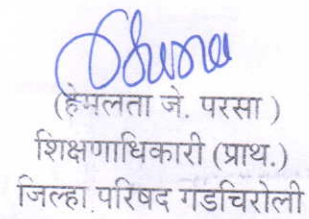 (हेमलता जे. परसा )
शिक्षणाधिकारी (प्राथ.)
जिल्हा परिषद गडचिरोली